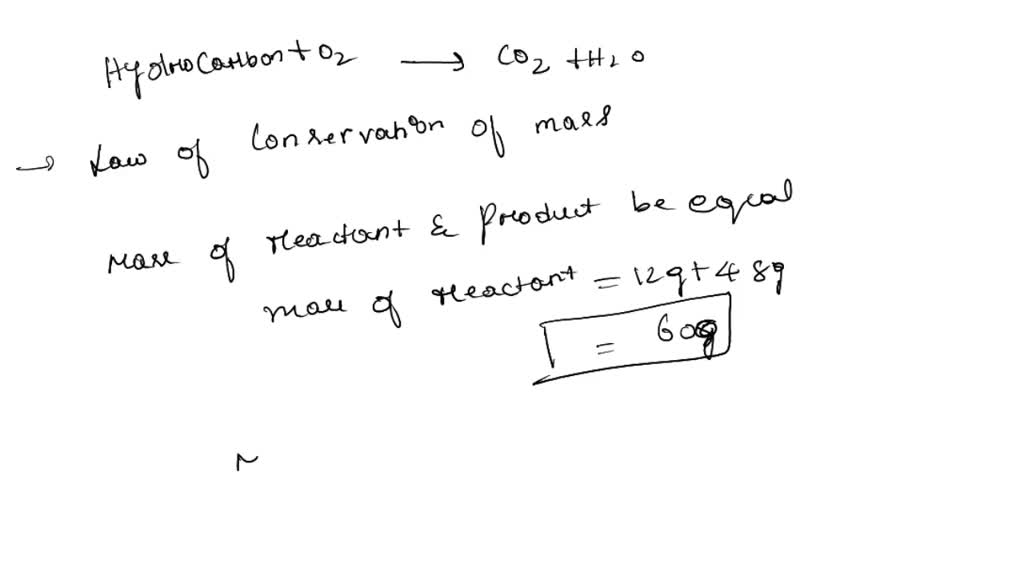 Hydrocarbon + O2 → CO2 + H2O
→ Law of Conservation of mass
mass of reactant & Product be equal
mass of reactant = 12g + 48g
= 60g
N